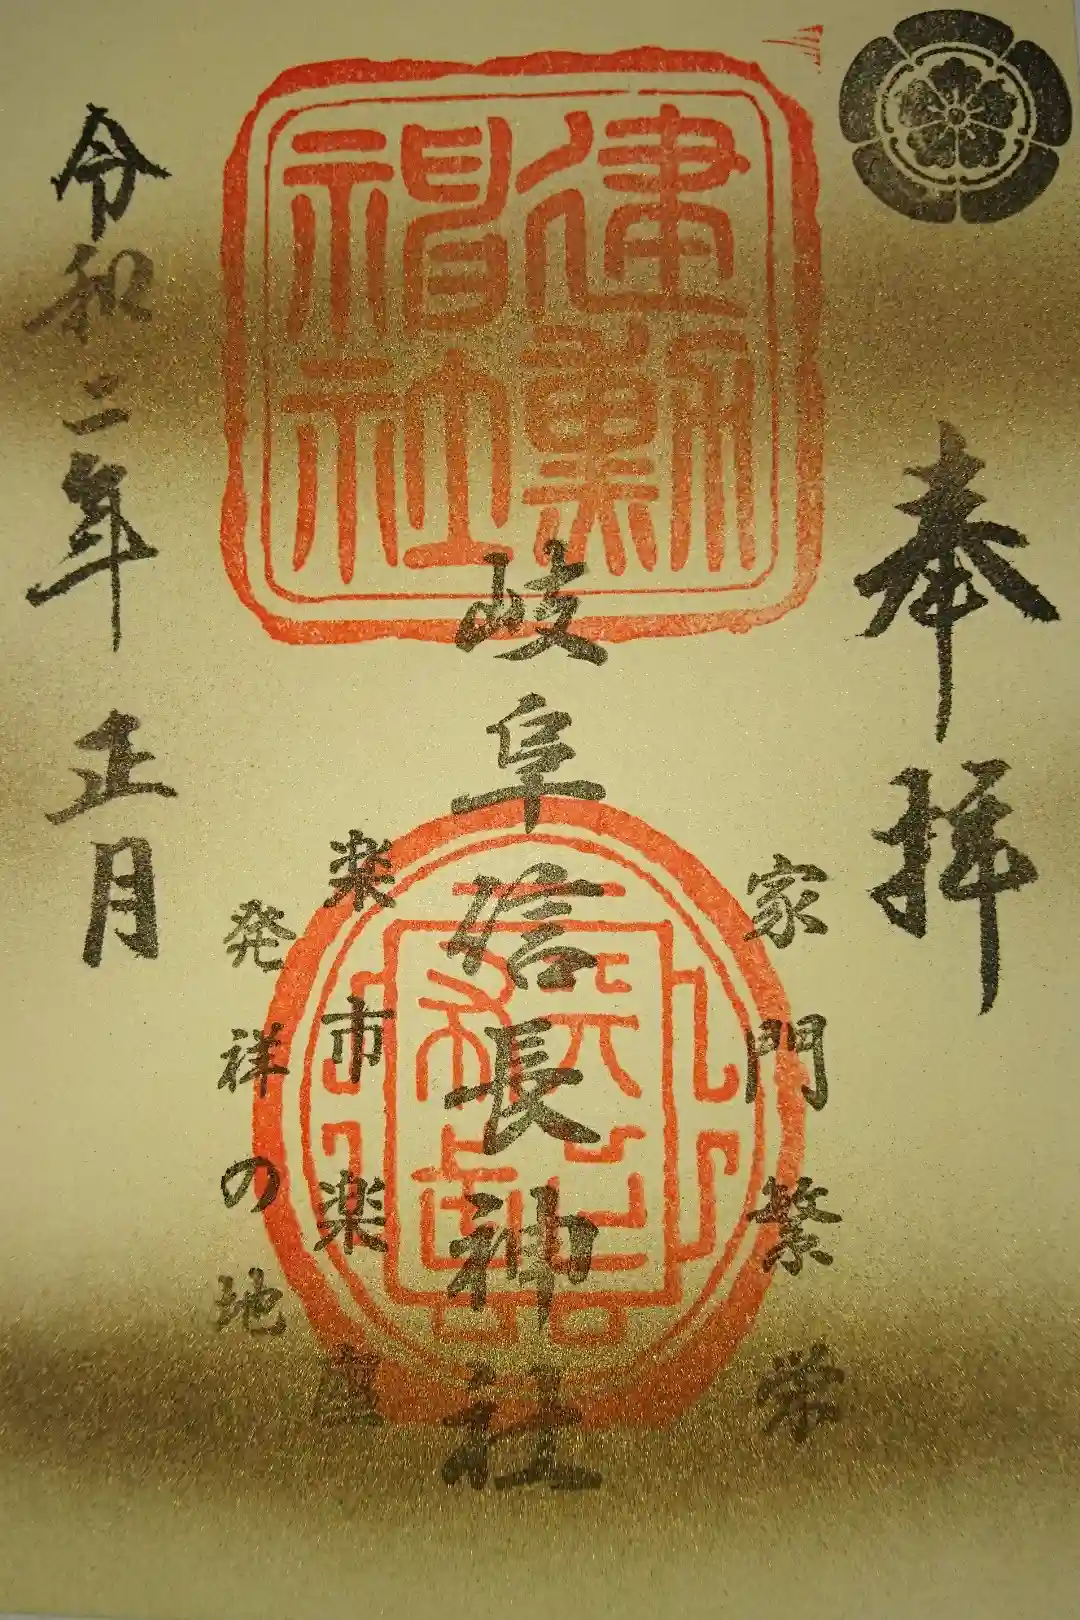 奉拝
家門繁栄
建勲神社
岐阜信長神社
楽市楽座
発祥の地
令和二年正月